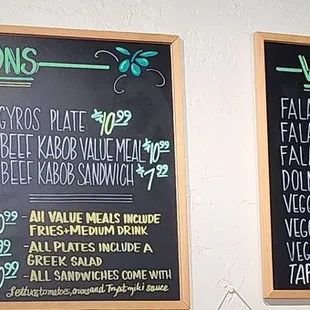 ONS
GYROS PLATE $10.99
BEEF KABOB VALUE MEAL $10.99
BEEF KABOB SANDWICH $7.99
- ALL VALUE MEALS INCLUDE
FRIES + MEDIUM DRINK
- ALL PLATES INCLUDE A
GREEK SALAD
- ALL SANDWICHES COME WITH
Lettuce, tomatoes, onions and sauce
99
99
99
V
FALA
FALA
FALA
DOLM
VEGG
VEGG
VEGG
TAP